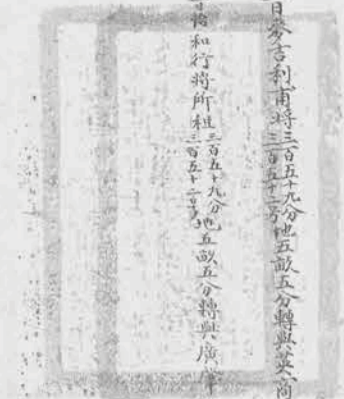 日麥吉利甫將三百五十九分三百五十二号地五畝五分轉與英商
和行將所租三百五十九分三百五十二号地五畝五分轉與廣